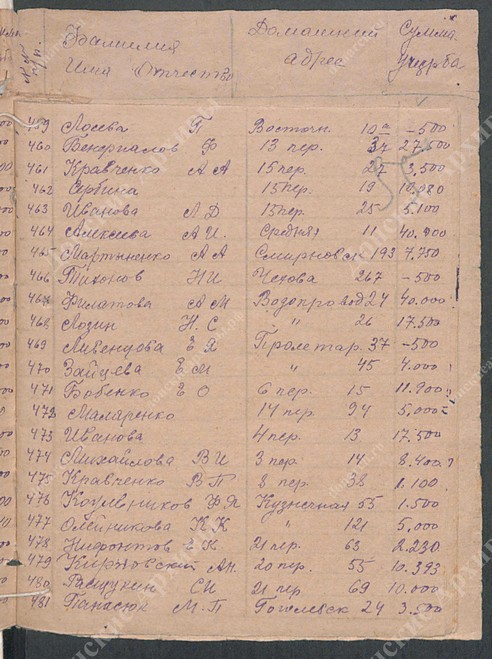 № п/п. Фамилия Имя Отчество Домашний адрес Сумма ущерба
459 Лосева П Восточн 10а -500
460 Бондриалов Ф 13 пер. 34 27,500
461 Кравченко А А 15 пер. 27 3,500
462 Сербина 15 пер. 19 10.080
463 Иванова Л Д 15 пер. 25 5.100
464 Алексеева А И. Средняя 11 40.700
465 Мартыненко А А Смирновск 193 7.750
466 Тихонов Н И Чехова 267 -500
467 Филатова А М Водопровод 24 40.000
468 Лозин Н. С. " 26 17.500
469 Ливенцова Е Я Пролетар. 37 -500
470 Зайцева Е М " 45 4.000
471 Бобенко Е О 6 пер. 15 11.900
472 Маларенко 14 пер. 94 5,000
473 Иванова 4 пер. 13 17.500
474 Михайлова В И 3 пер. 14 8.400
475 Кравченко В П 8 пер. 38 1.100
476 Кузнечная 55 1.500
477 Олейникова К К " 121 5,000
478 Нифонтов 21 пер. 63 2.230
479 Ан. 20 пер. 55 10.393
480 СИ 21 пер. 69 10.000
481 Панасюк М-П Гоголевск 24 3.500